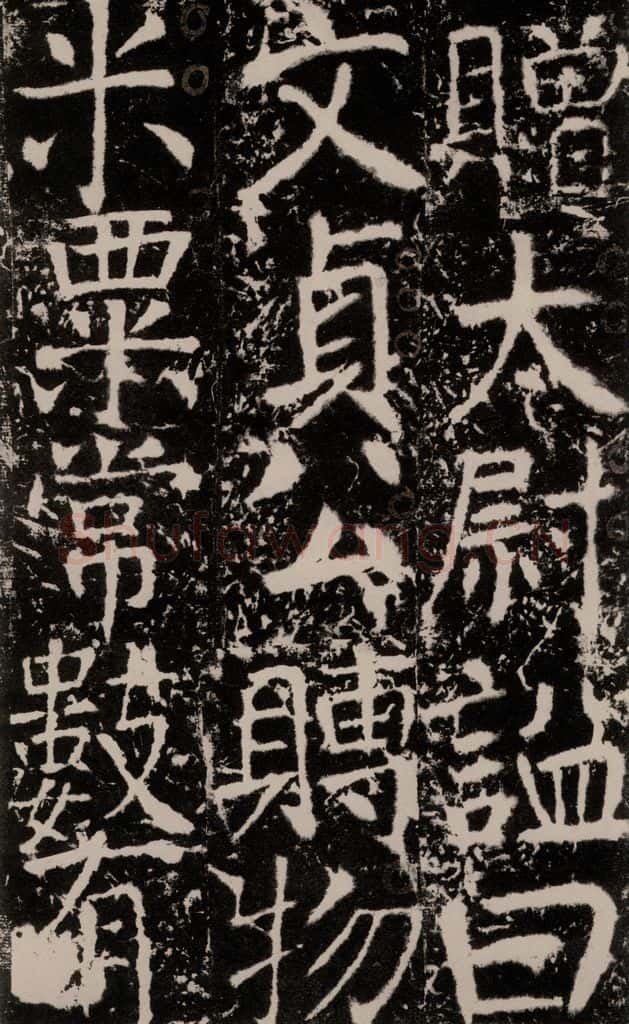 贈大尉謚曰
文貞公賻物
米粟常數有
Shufawang.CN